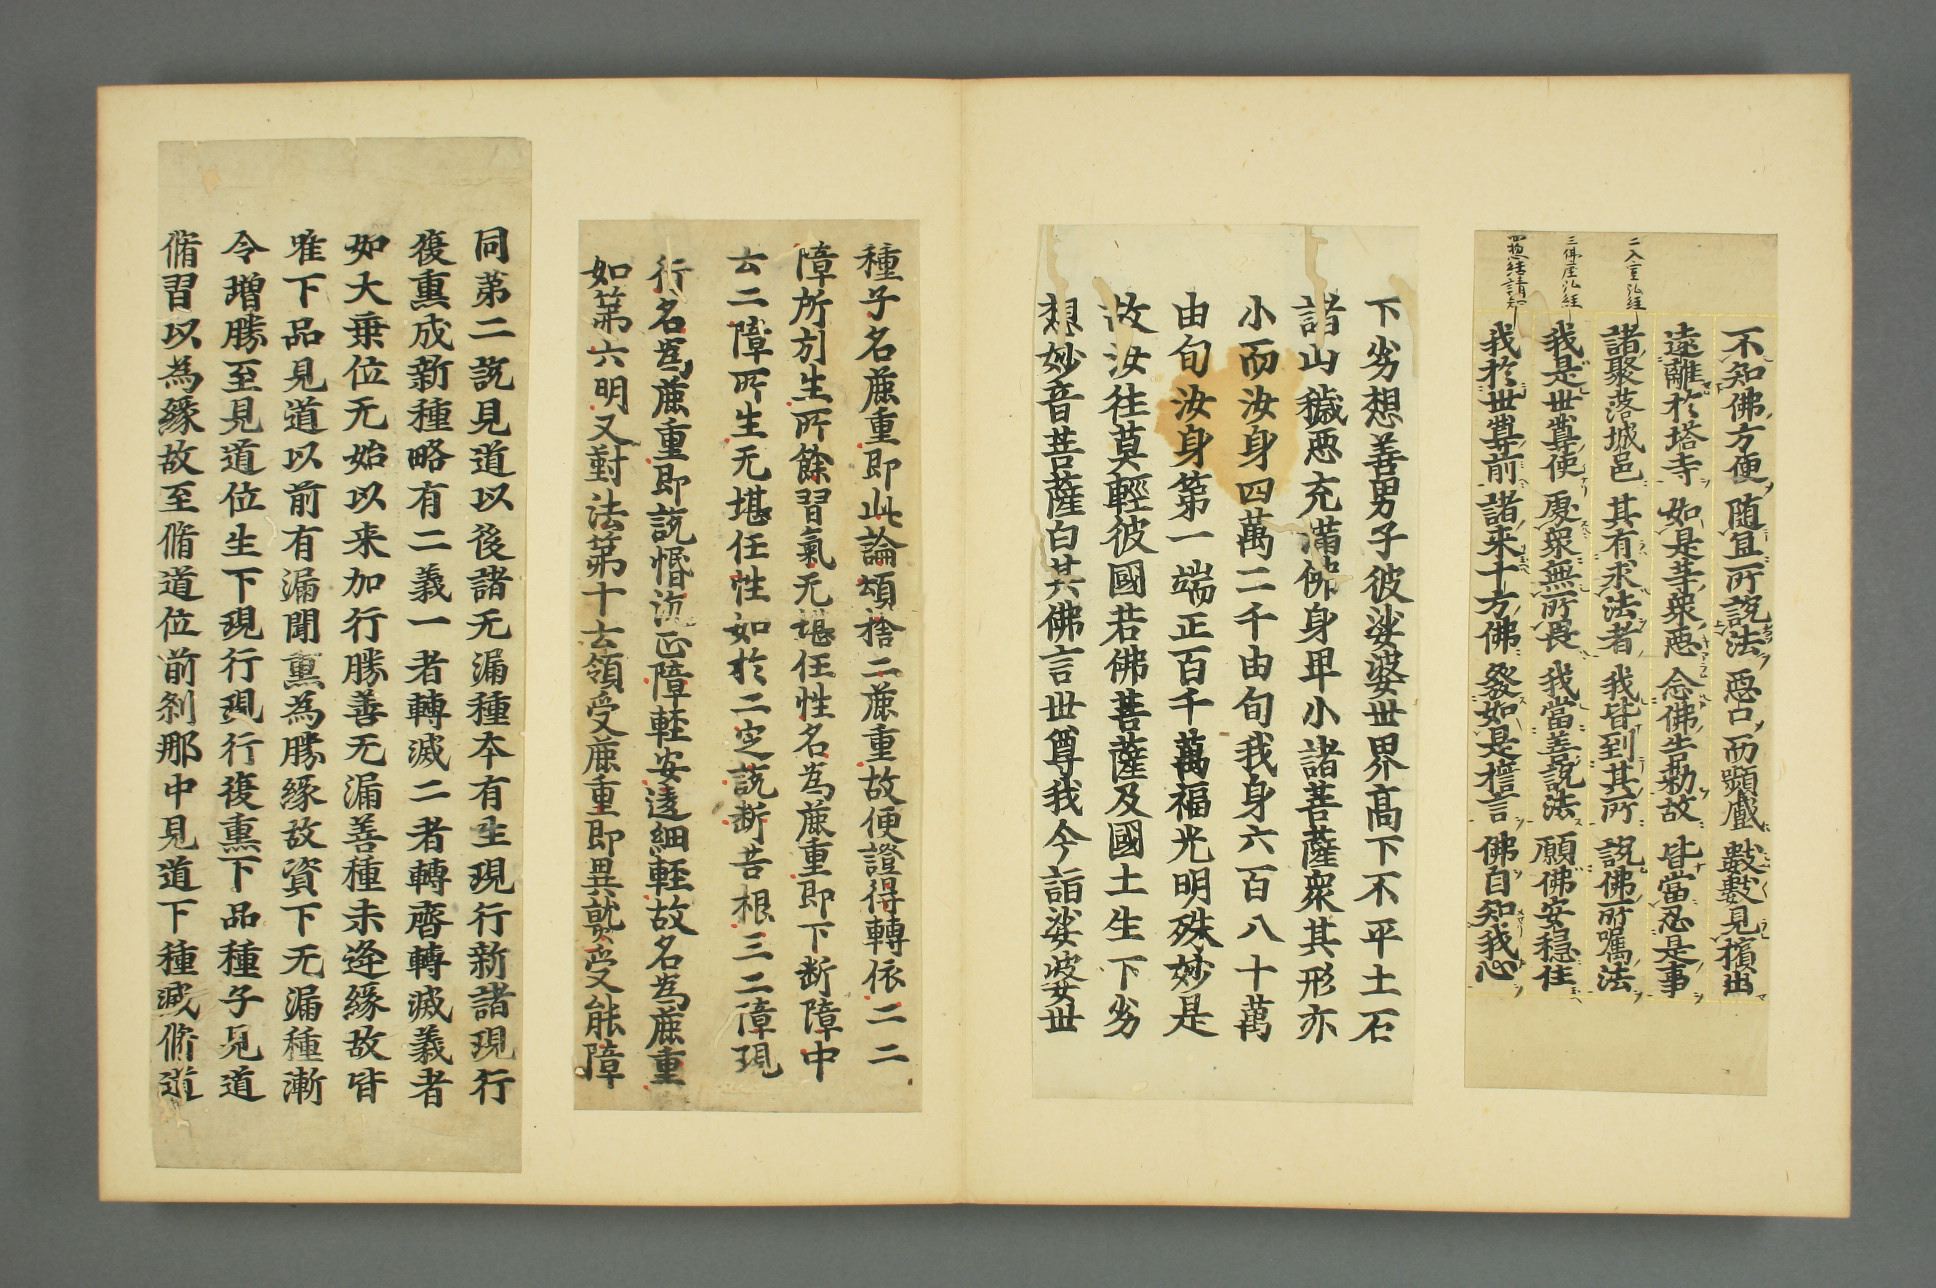 二入室弘経
三俱座弘経
四惣結請知
不知佛方便 随宜所説法 惡口而顰慼 數數見擯出
遠離於塔寺 如是等衆惡 念佛告勅故 皆當忍是事
諸聚落城邑 其有求法者 我皆到其所 説佛所囑法
我是世尊使 處衆無所畏 我當善説法 願佛安穩住
我於世尊前 諸来十方佛 發如是擔言 佛自知我心
下劣想善男子彼娑婆世界高下不平土石
諸山穢惡充滿佛身卑小諸菩薩衆其形亦
小而汝身四萬二千由旬我身六百八十萬
由旬汝身第一端正百千萬福光明殊妙是
故汝往莫輕彼國若佛菩薩及國土生下劣
想妙音菩薩白其佛言世尊我今詣娑婆世
種子名麁重即此論頌捨二麁重故便證得轉依二二
障所引生所餘習氣无堪任性名為麁重即下断障中
云二障所生无堪任性如於二定説断苦根三二障現
行名為麁重即説惛沉正障軽安遠細軽故名為麁重
如第六明又對法第十云領受麁重即異熟受能障
同第二説見道以後諸无漏種本有生現行新諸現行
復熏成新種略有二義一者轉滅二者轉齊轉滅義者
如大乗位无始以来加行勝善无漏善種未逢縁故皆
唯下品見道以前有漏聞熏為勝縁故資下无漏種漸
令增勝至見道位生下現行現行復熏下品種子見道
脩習以為縁故至脩道位前刹那中見道下種減脩道